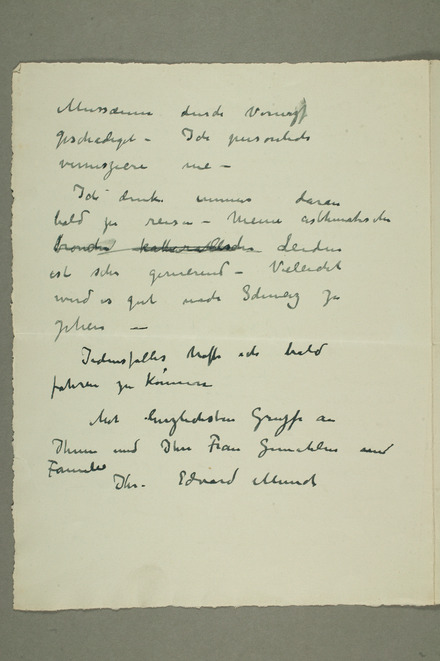 Museerne durch Verniss
geschädigt – Ich persönlich
vernissiere nie –
Ich denke immer daran
bald zu reisen – Meine asthmatische
bronchi katharalische Leiden
ist sehr genierend – Vielleicht
wird es gut nach Schweiz zu
gehen –
Jedenfalles hoffe ich bald
fahren zu können
Mit herzlichsten Grüsse an
Ihnen und Ihre Frau Gemahlin und
Familie
Ihr. Edvard Munch